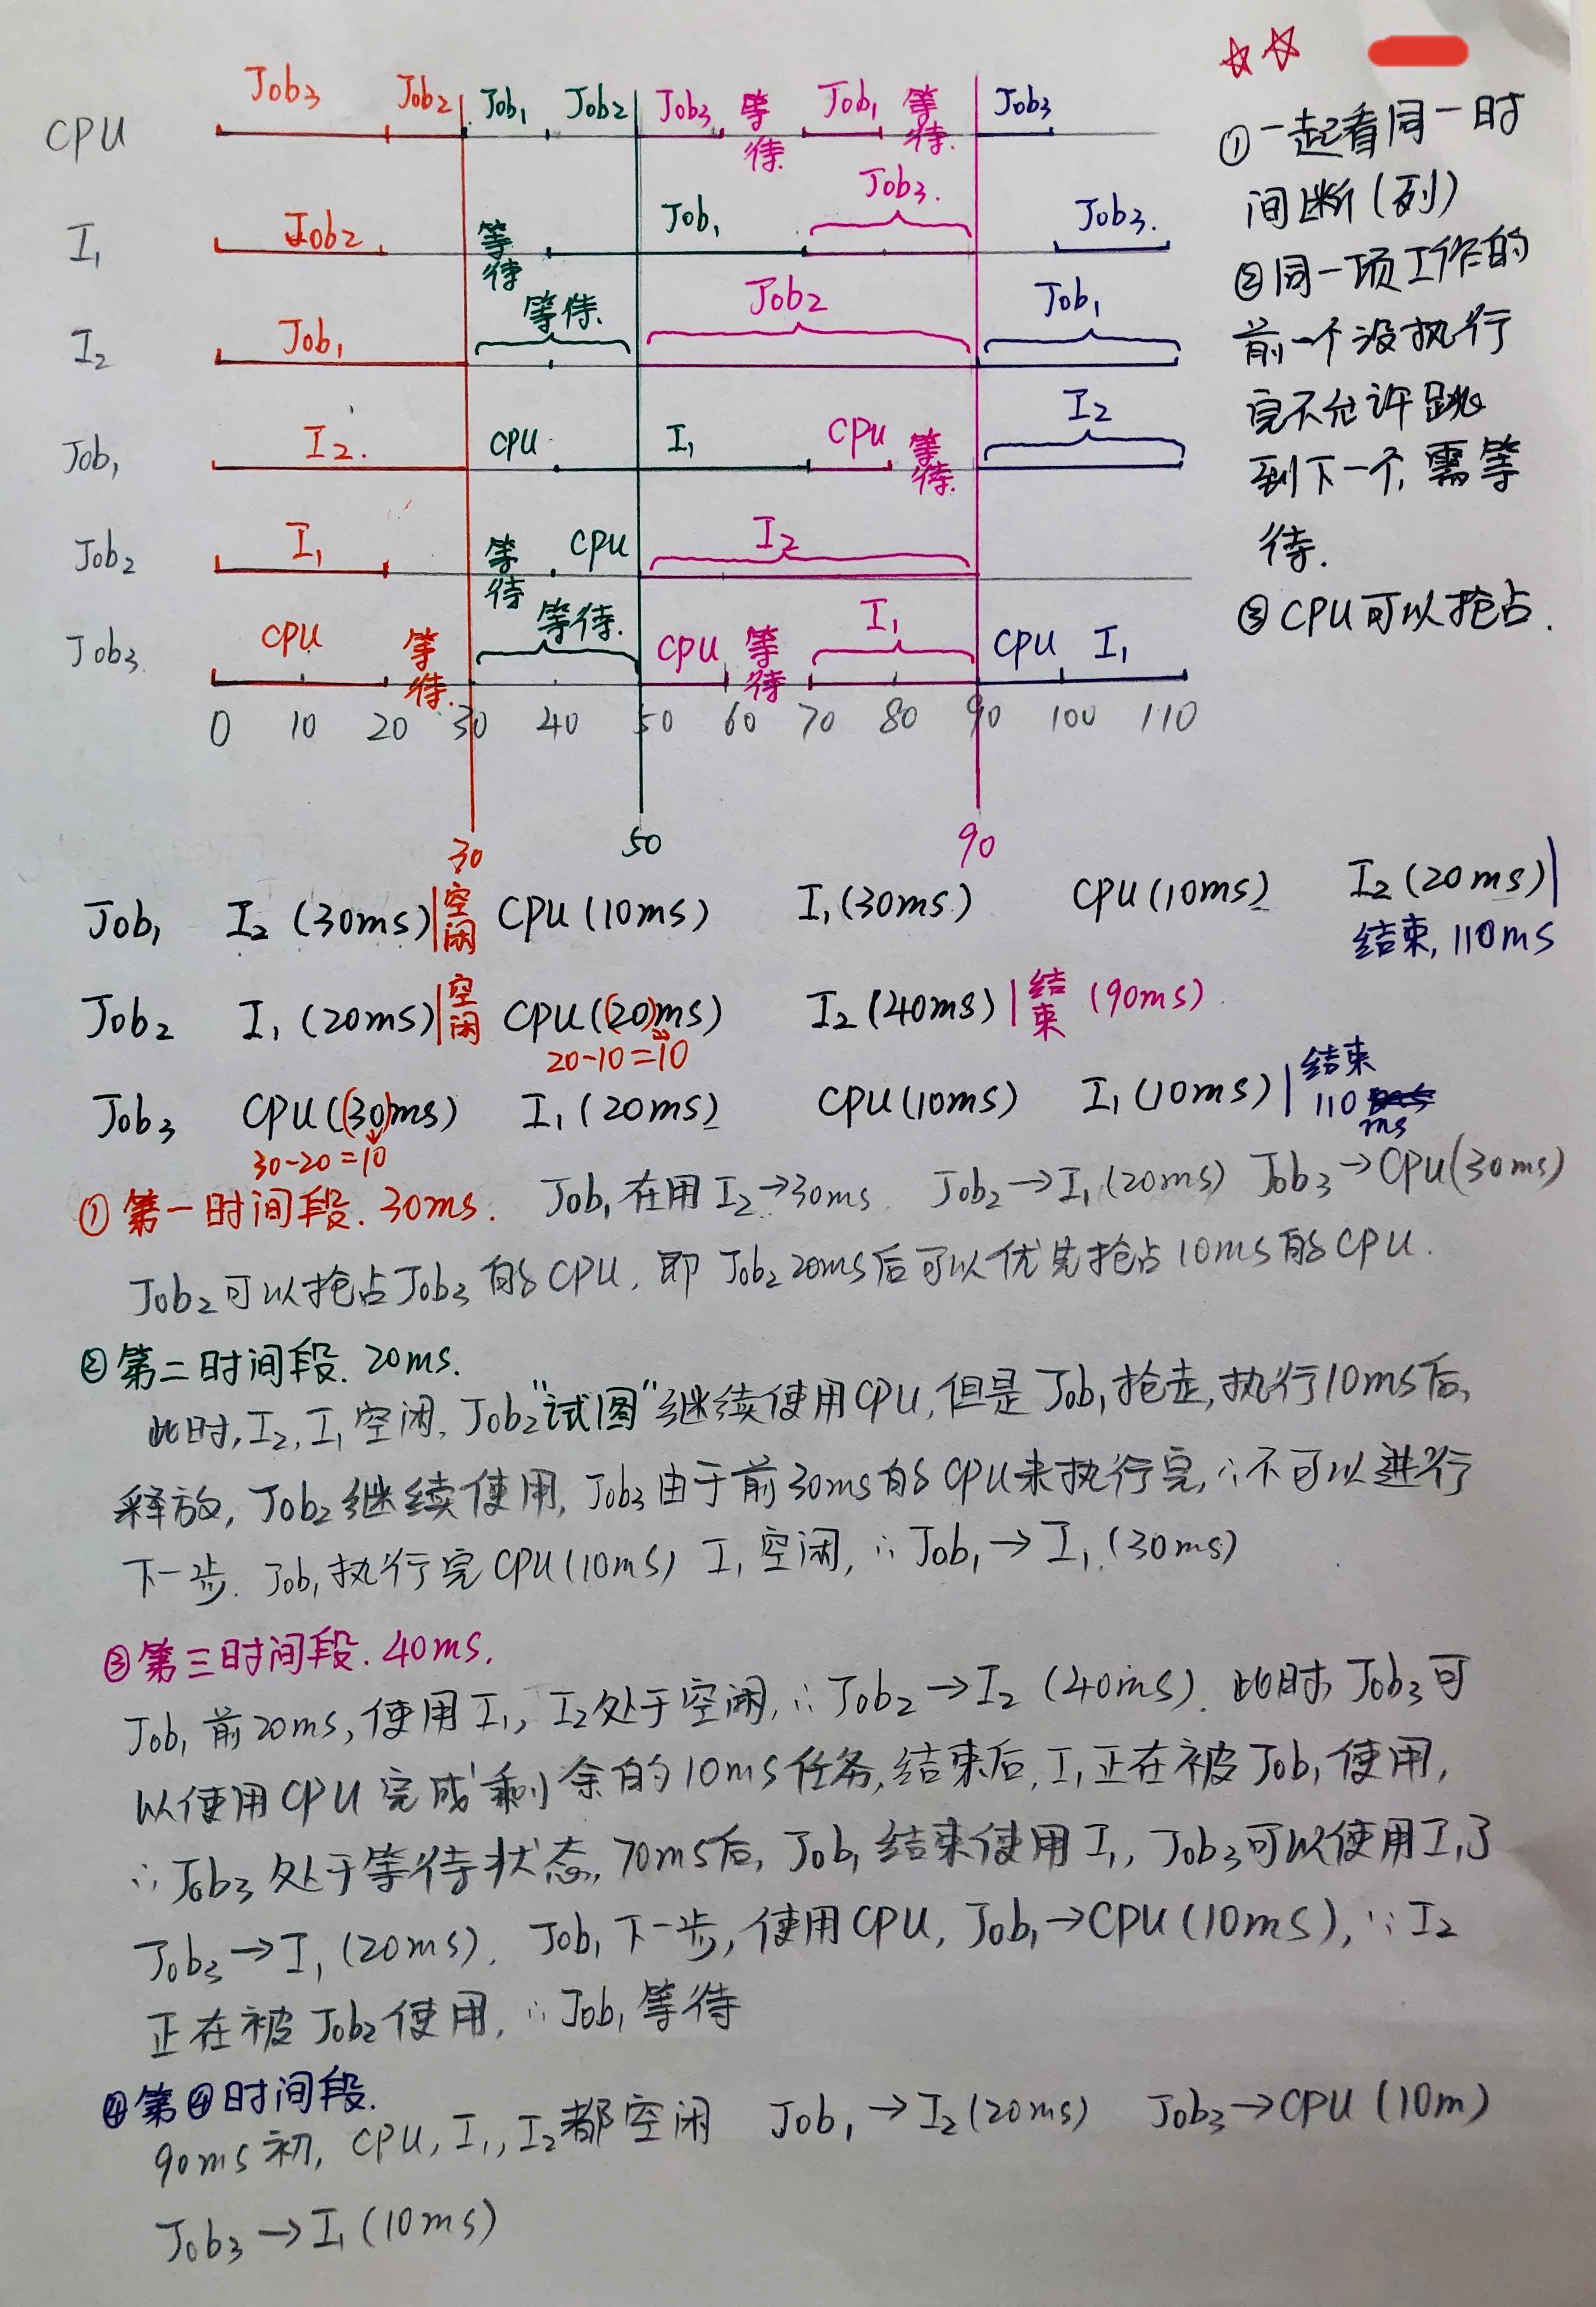 Job3 Job2 Job1 Job2 Job3 等待 Job1 等待. Job3
CPU
I1 Job2 等待 Job1 Job3. Job3.
I2 Job1 等待. Job2 Job1
Job1 I2. CPU I1 CPU 等待. I2
Job2 I1 等待 CPU I2
Job3 CPU 等待. 等待. CPU 等待 I1 CPU I1
0 10 20 30 40 50 60 70 80 90 100 110
30 50 90
①一起看同一时
间断(列)
②同一项工作的
前一个没执行
完不允许跳
到下一个,需等
待.
③CPU可以抢占.
Job1 I2 (30ms)|空闲 CPU(10ms) I1(30ms) CPU(10ms) I2(20ms)|
结束, 110ms
Job2 I1(20ms)|空闲 CPU(20ms) I2(40ms)|结束 (90ms)
20-10=10
Job3 CPU(30ms) I1(20ms) CPU(10ms) I1(10ms)|结束
110
ms
30-20=10
①第一时间段. 30ms. Job1在用I2→30ms Job2→I1(20ms) Job3→CPU(30ms)
Job2可以抢占Job3的CPU, 即Job2 20ms后可以优先抢占10ms的CPU.
②第二时间段. 20ms.
此时, I2, I1空闲, Job2"试图"继续使用CPU, 但是Job1抢走, 执行10ms后,
释放, Job2继续使用, Job3由于前30ms的CPU未执行完, ∴不可以进行
下一步. Job1执行完CPU(10ms) I1空闲, ∴Job1→I1(30ms)
③第三时间段. 40ms.
Job1前20ms, 使用I1, I2处于空闲, ∴Job2→I2 (40ms). 此时, Job3可
以使用CPU完成剩余的10ms任务, 结束后, I1正在被Job1使用,
∴Job3处于等待状态, 70ms后, Job1结束使用I1, Job3可以使用I1了
Job3→I1(20ms). Job1下一步, 使用CPU, Job1→CPU(10ms), ∵I2
正在被Job2使用, ∴Job1等待
④第④时间段.
90ms初, CPU, I1, I2都空闲 Job1→I2(20ms) Job3→CPU(10m)
Job3→I1(10ms)